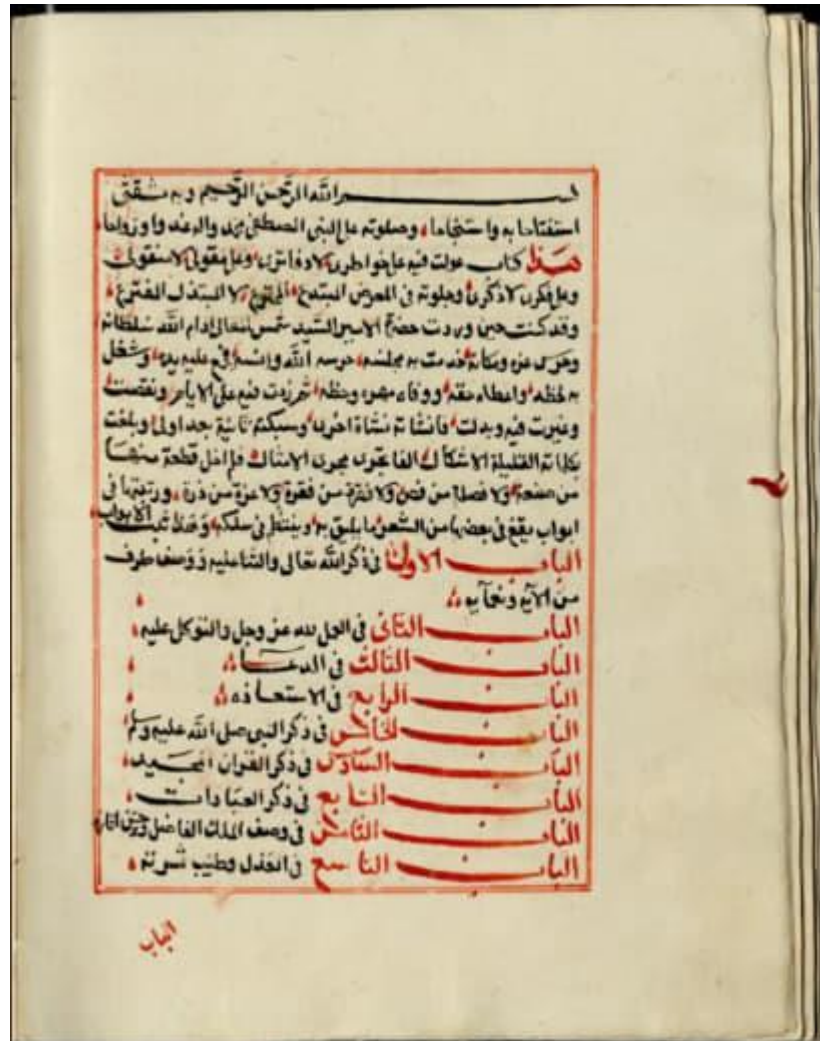 بسم الله الرحمن الرحيم وبه ثقتي
استفتاحا به واستنجاحا، وصلوته على النبي المصطفى محمد واله
هذا كتاب عولت فيه على خواطري لا دفاتري، وعلى مقولي لا منقولي
وعلى فكري لا ذكري، وجلوته في المعرض المبتدع المخترع، لا المبتذل المفترع،
وقد كنت حين وردت حضرة الامير السيد شمس المعالي ادام الله سلطانه
وحرس عزه ومكانه خدمت به مجلسه، حرسه الله وانسه، فرفع عليه يده، وشغل
به لحظه، واعطاه حقه، ووفاه مهره وحظه، ثم زدت فيه على الايام ونقصت
وغيرت فيه وبدلت، فانشاته نشاة اخرى، وسبكته ثانية بعد اولى، وبلغت
بكلماته القليلة الاشكال، الجارية مجرى الامثال، فلم اخل قطعة منها
من صنعة، ولا فصلا من فص، ولا فقرة من فقرة، ولا غرة من درة، ورتبتها في
ابواب يقع في بعضها من الشعر ما يليق به، وينتظم في سلكه، وهذا ثبت الابواب
الباب الاول في ذكر الله تعالى والثنا عليه ووصف طرف
من الآيه ونعمآيه
الباب الثاني في الحمد لله عز وجل والتوكل عليه
الباب الثالث في الدعا
الباب الرابع في الاستعاذه
الباب الخامس في ذكر النبي صلى الله عليه وسلم
الباب السادس في ذكر القران المجيد
الباب السابع في ذكر العبادات
الباب الثامن في وصف الملك الفاضل وحسن اثاره
الباب التاسع في العدل وطيب ثمرته
الباب